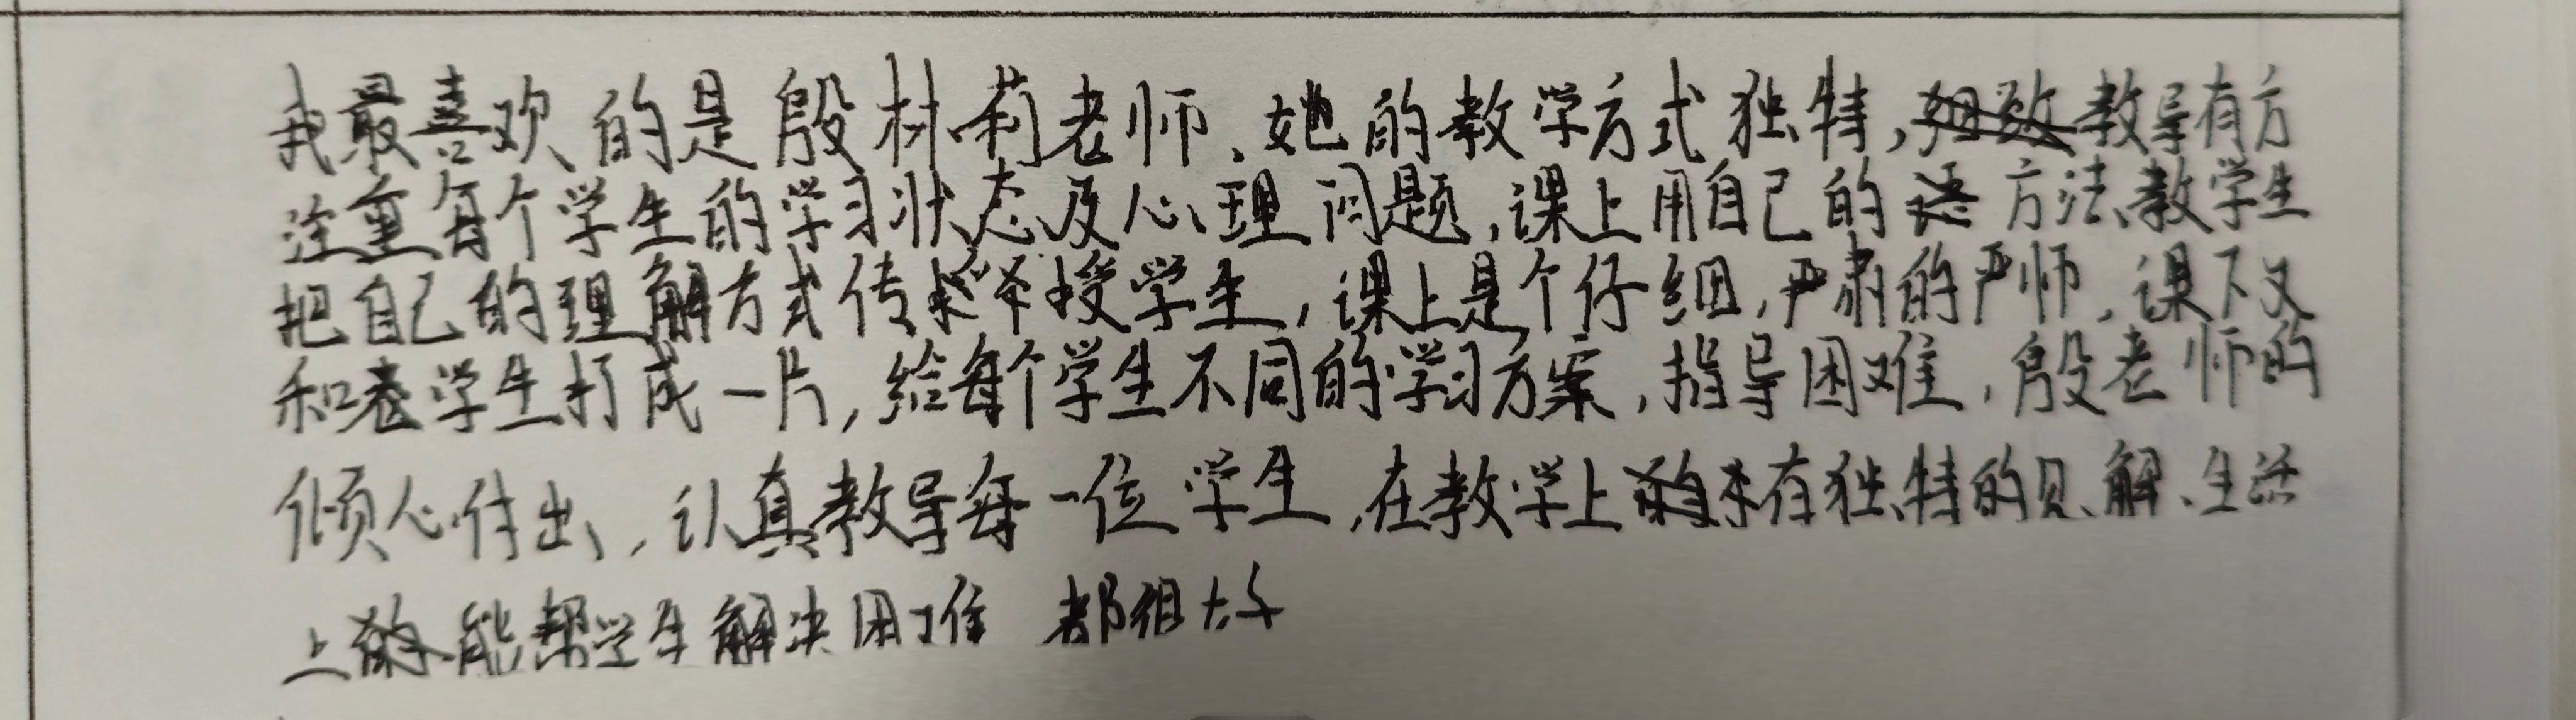 我最喜欢的是殷材莉老师、她的教学方式独特,教导有方
注重每个学生的学习状态及心理问题,课上用自己的方法教学生
把自己的理解方式传授学生,课上是个仔细,严肃的严师,课下又
和学生打成一片,给每个学生不同的学习方案,指导困难,殷老师的
倾心付出,认真教导每一位学生,在教学上有独特的见解、生活
上能帮学生解决困难 都很好